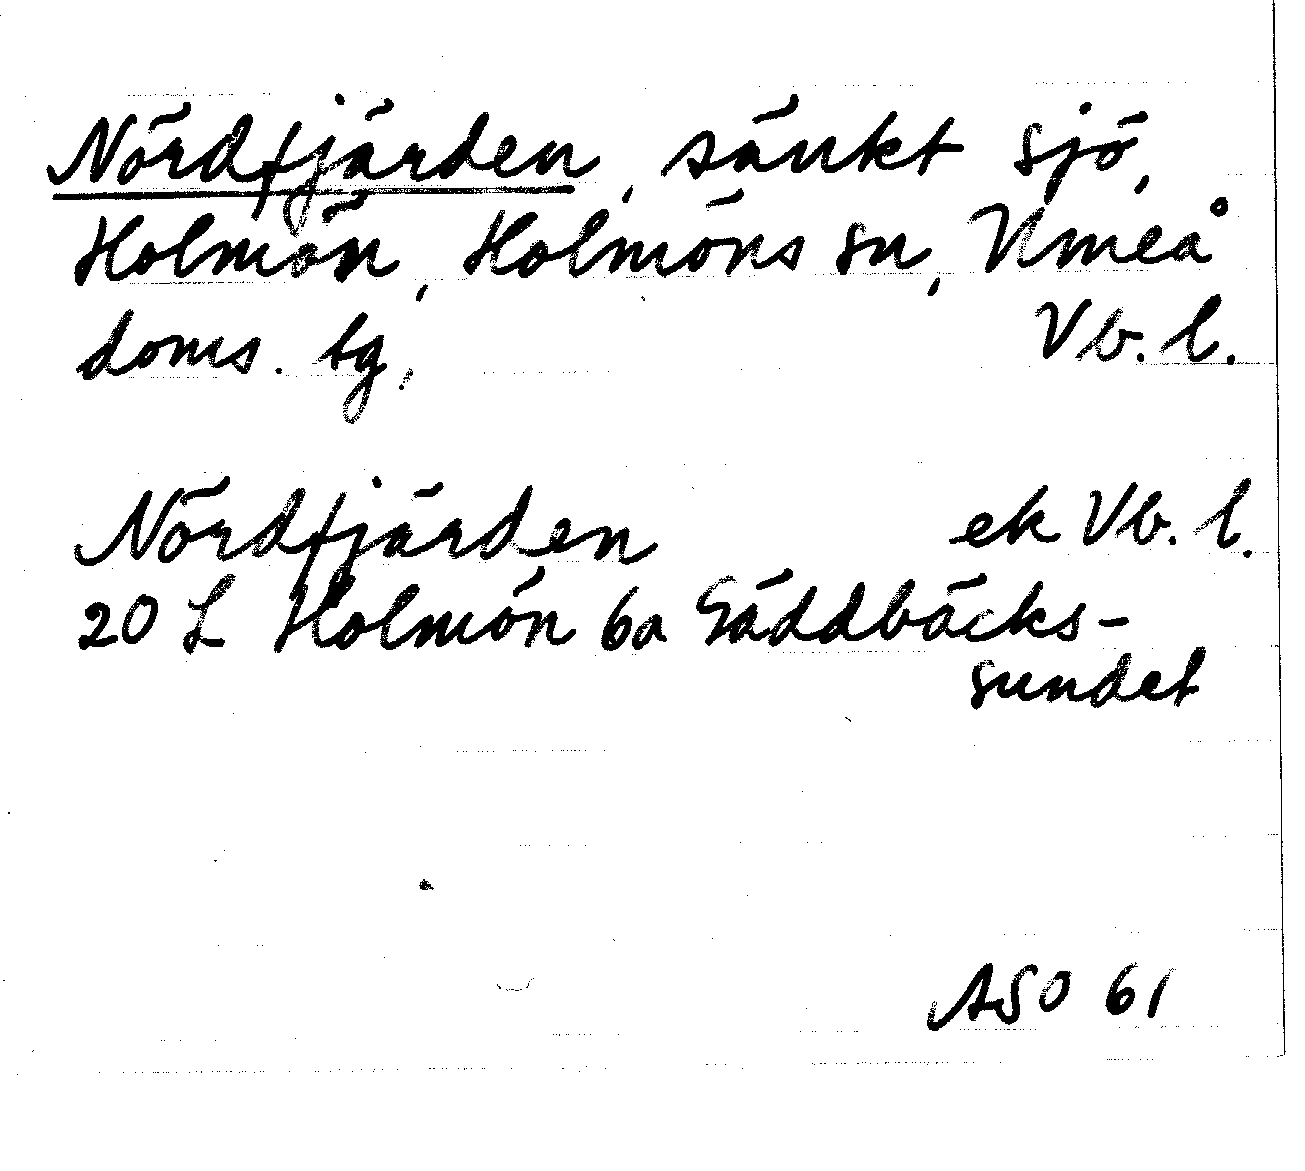 Nördfjärden, sänkt sjö,
Holmön, Holmöns sn, Umeå
doms. tg, Vb. l.
Nördfjärden ek Vb. l.
20 L Holmön 6a Gäddbäcks-
sundet
ASO 61